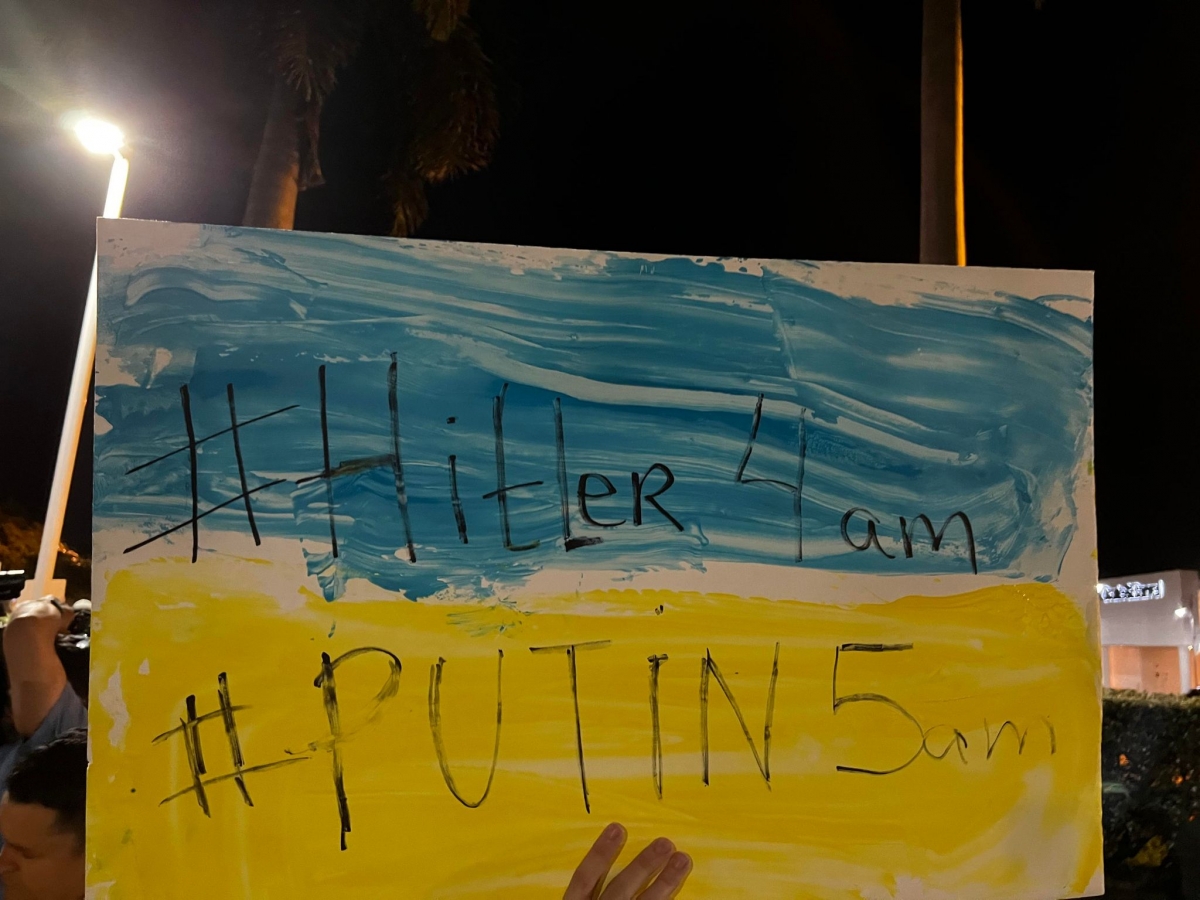 #Hitler 4am
#PUTIN 5am